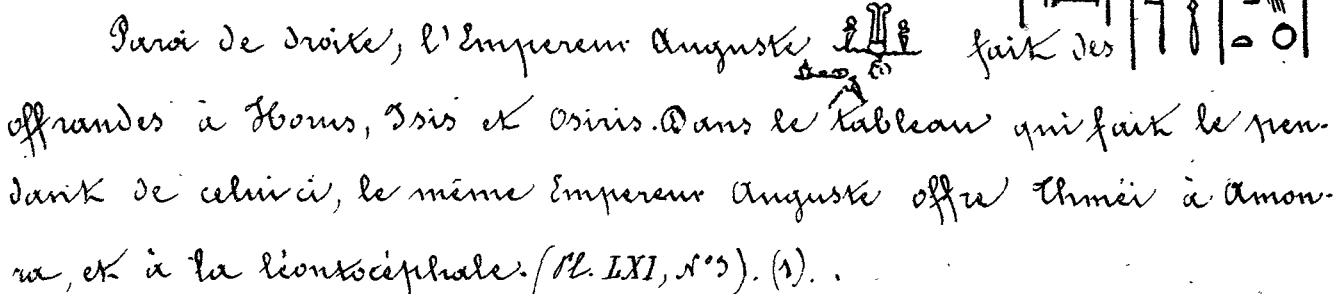 Paroi de droite, l'Empereur Auguste fait des
offrandes à Horus, Isis et Osiris. Dans le tableau qui fait le pen-
dant de celui ci, le même Empereur Auguste offre Thméi à Amon-
ra, et à la léontocéphale. (Pl. LXI, N° 3). (1). .